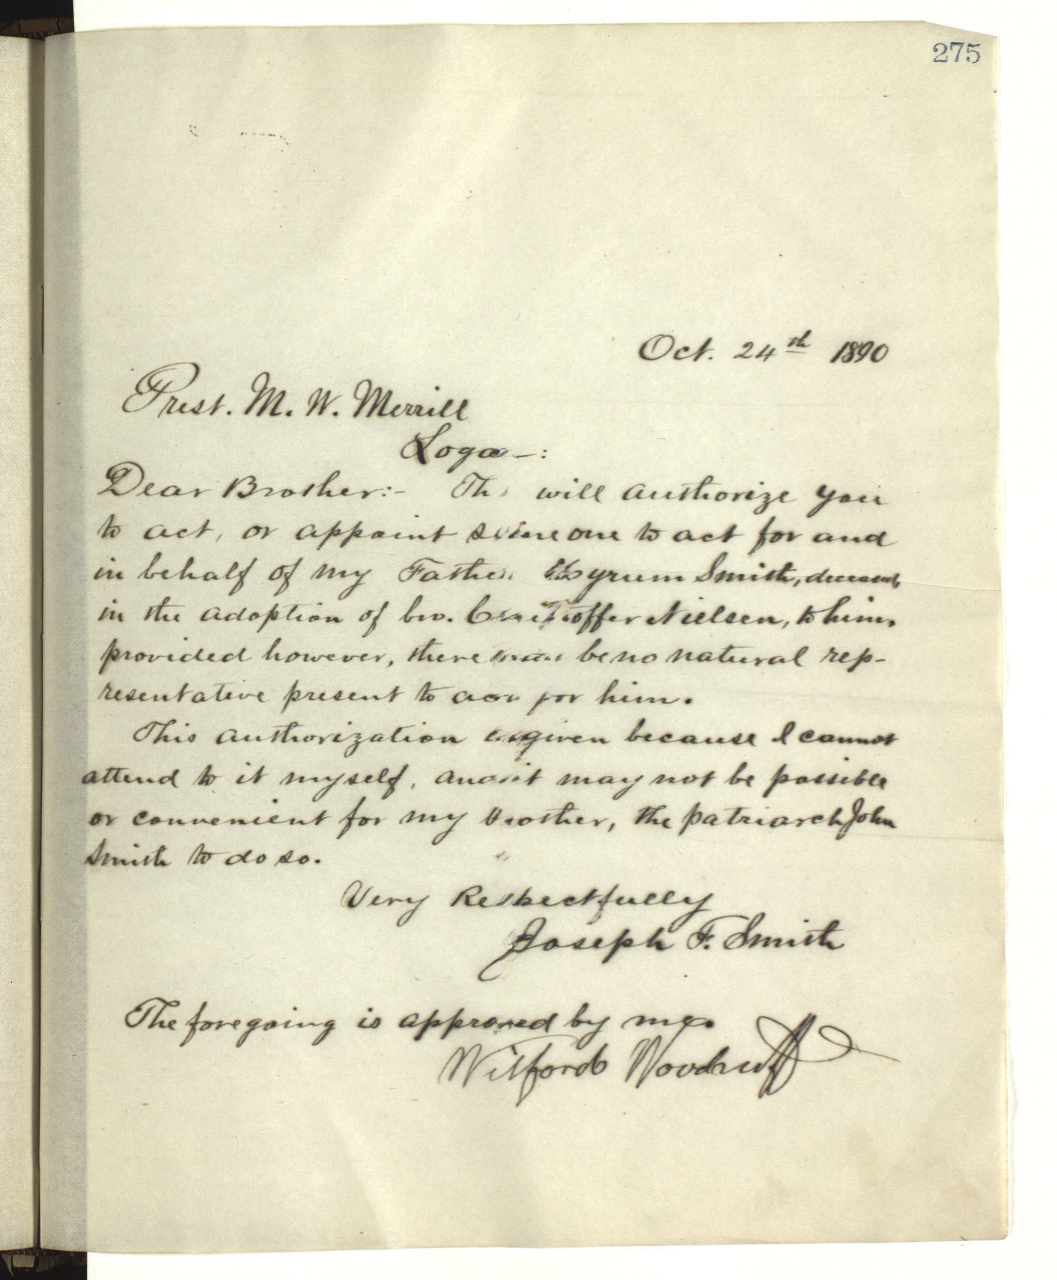 275
Oct. 24th 1890
Prest. M. W. Merrill
Logan:
Dear Brother:- This will authorize you
to act, or appoint someone to act for and
in behalf of my Father Hyrum Smith, deceased,
in the adoption of bro. Nielsen, to him,
provided however, there be no natural rep-
resentative present to act for him.
This authorization is given because I cannot
attend to it myself, and it may not be possible
or convenient for my brother, the patriarch John
Smith to do so.
Very Respectfully
Joseph F. Smith
The foregoing is approved by me.
Wilford Woodruff